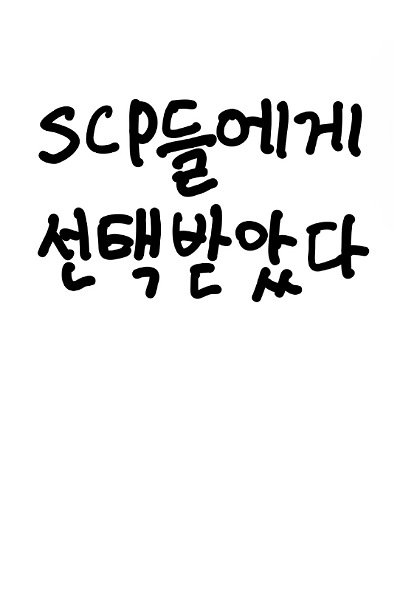 SCP들에게
선택받았다